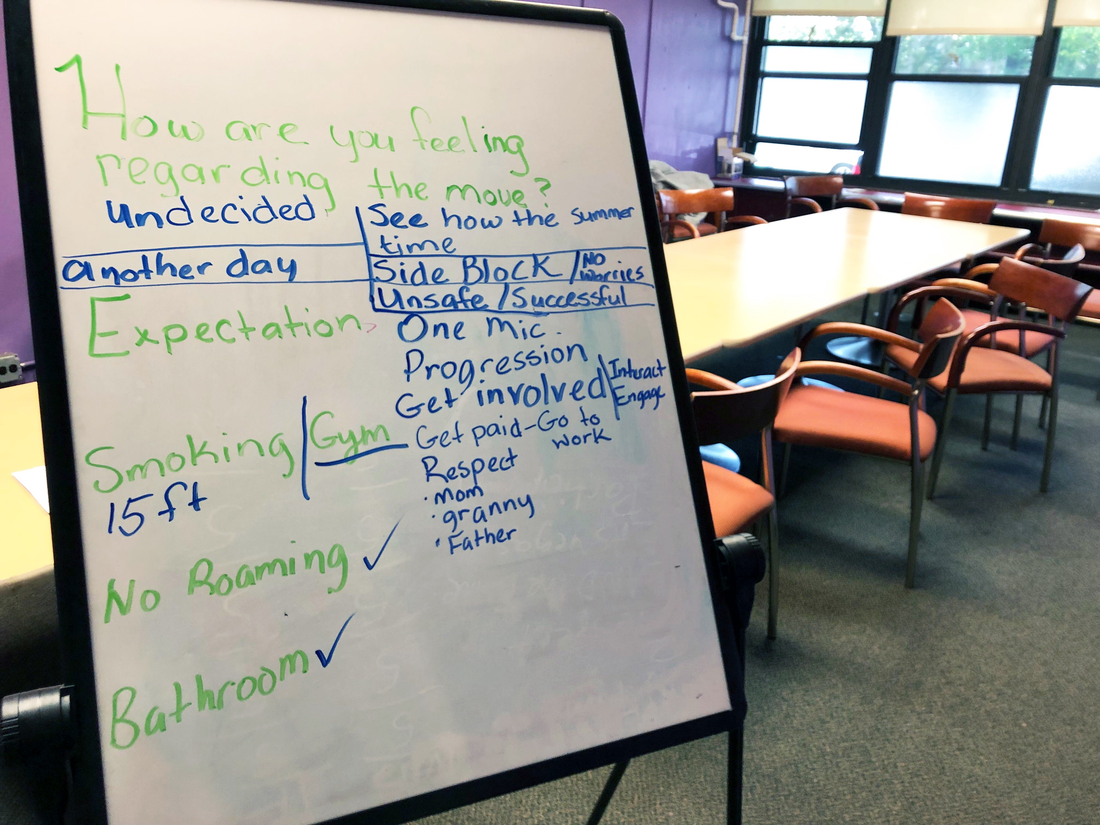 How are you feeling
regarding the move?
undecided
another day
See how the summer
time
Side Block / No
worries
Unsafe / Successful
Expectation
One mic.
Progression
Get involved
Interact
Engage
Get paid - Go to
work
Respect
· mom
· granny
· Father
Smoking | Gym
15 ft
No Roaming ✓
Bathroom ✓